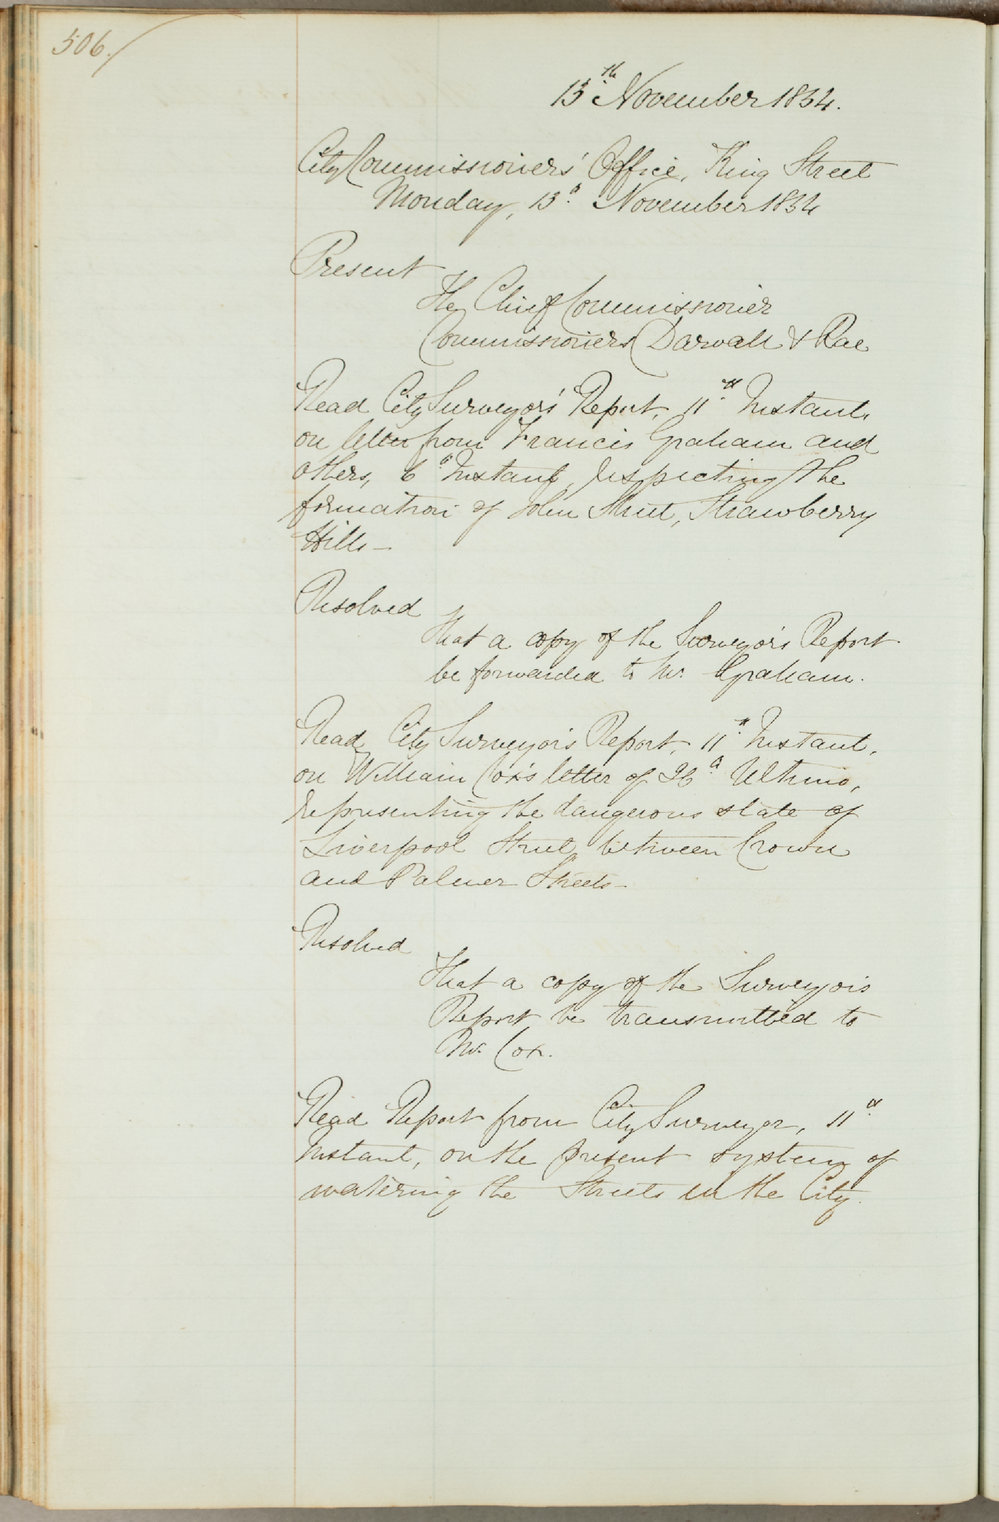 506.
13th November 1854.
City Commissioners' Office, King Street
Monday, 13th November 1854
Present
The Chief Commissioner
Commissioners Darvall & Rae
Read City Surveyors' Report, 11th Instant,
on letter from Francis Graham and
others, 6th Instant, respecting the
formation of John Street, Strawberry
Hills—
Resolved
That a copy of the Surveyor's Report
be forwarded to Mr. Graham.
Read City Surveyor's Report, 11th Instant,
on William Cox's letter of 26th Ultimo,
representing the dangerous state of
Liverpool Street between Crown
and Palmer Streets—
Resolved
That a copy of the Surveyor's
Report be transmitted to
Mr. Cox.
Read Report from City Surveyor, 11th
Instant, on the present system of
watering the Streets in the City.